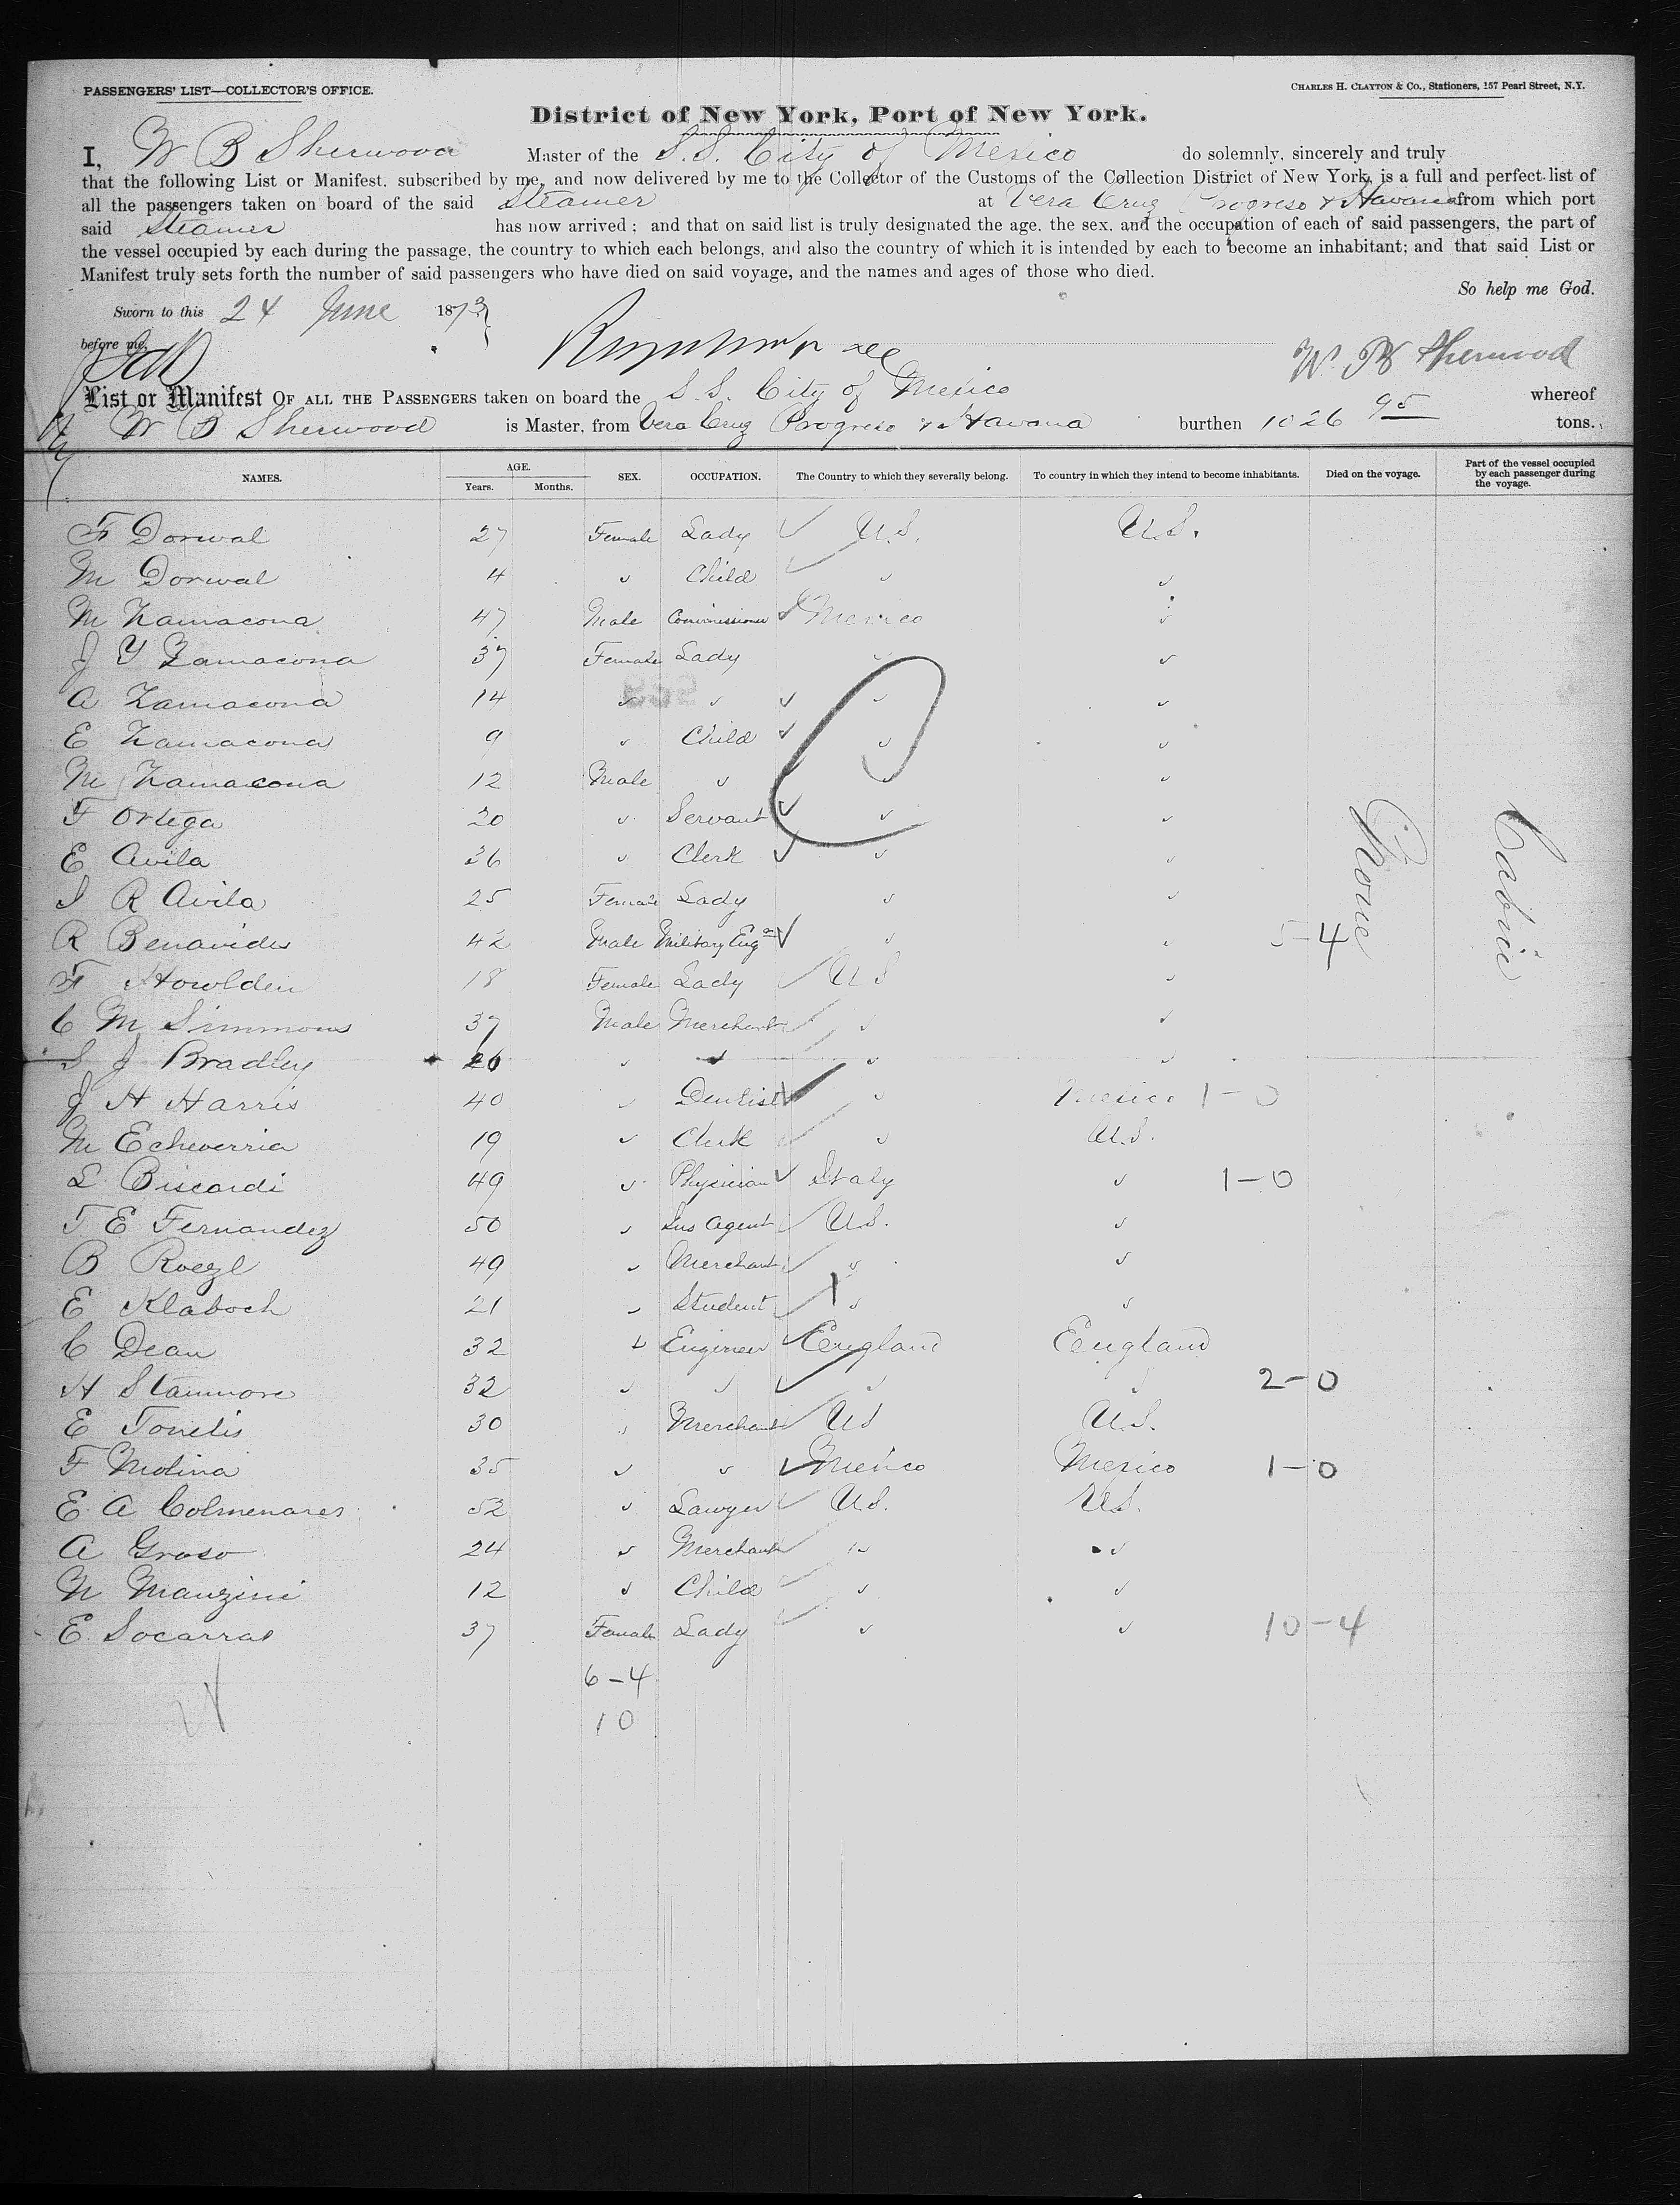 PASSENGERS' LIST—COLLECTOR'S OFFICE.
CHARLES H. CLAYTON & CO., Stationers, 157 Pearl Street, N.Y.
District of New York, Port of New York.
I, W B Sherwood Master of the S.S. City of Mexico do solemnly, sincerely and truly
that the following List or Manifest, subscribed by me, and now delivered by me to the Collector of the Customs of the Collection District of New York, is a full and perfect list of
all the passengers taken on board of the said Steamer at Vera Cruz Progreso & Havana from which port
said Steamer has now arrived; and that on said list is truly designated the age, the sex, and the occupation of each of said passengers, the part of
the vessel occupied by each during the passage, the country to which each belongs, and also the country of which it is intended by each to become an inhabitant; and that said List or
Manifest truly sets forth the number of said passengers who have died on said voyage, and the names and ages of those who died.
So help me God.
Sworn to this 24 June 1873
before me,
W. B Sherwood
List or Manifest OF ALL THE PASSENGERS taken on board the S.S. City of Mexico whereof
W B Sherwood is Master, from Vera Cruz Progreso & Havana burthen 1026 95 tons.
NAMES. AGE. Years. Months. SEX. OCCUPATION. The Country to which they severally belong. To country in which they intend to become inhabitants. Died on the voyage. Part of the vessel occupied by each passenger during the voyage.
F Dorwal 27 Female Lady U.S. U.S.
M Dorwal 4 " Child " "
M Zamacona 47 Male Commissioner Mexico "
J Y Zamacona 37 Female Lady " "
A Zamacona 14 " " " "
E Zamacona 9 " Child " "
M Zamacona 12 Male " " "
F Ortega 20 " Servant " "
E Avila 26 " Clerk " "
S R Avila 25 Female Lady " "
R Benavides 42 Male Military Engr " " 5-4
F Howlden 18 Female Lady U S "
C M Simmons 37 Male Merchant " "
S J Bradley 26 " " " "
J H Harris 40 " Dentist " Mexico 1-0
M Echeverria 19 " Clerk " U.S.
L Biscardi 49 " Physician Italy " 1-0
T E Fernandez 50 " Ins Agent U.S. "
B Roezl 49 " Merchant " "
E Klaboch 21 " Student " "
C Dean 32 " Engineer England England
H Stanmore 32 " " " " 2-0
E Tonelis 30 " Merchant US U.S.
F Molina 35 " " Mexico Mexico 1-0
E A Colmenares 52 " Lawyer U.S. U.S.
A Graso 24 " Merchant " "
N Manzini 12 " Child " "
E Socarras 37 Female Lady " " 10-4
None
Cabin
6-4
10